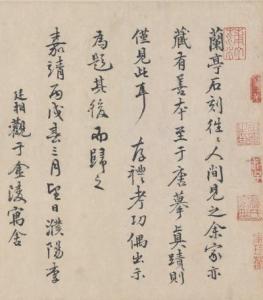 蘭亭石刻徃〻人間見之余家亦
藏有善本至于唐摹眞蹟則
僅見此耳 存禮考功偶出示
為題其後而歸之
嘉靖丙戌春三月望日濮陽李
廷相觀于金陵寓舍